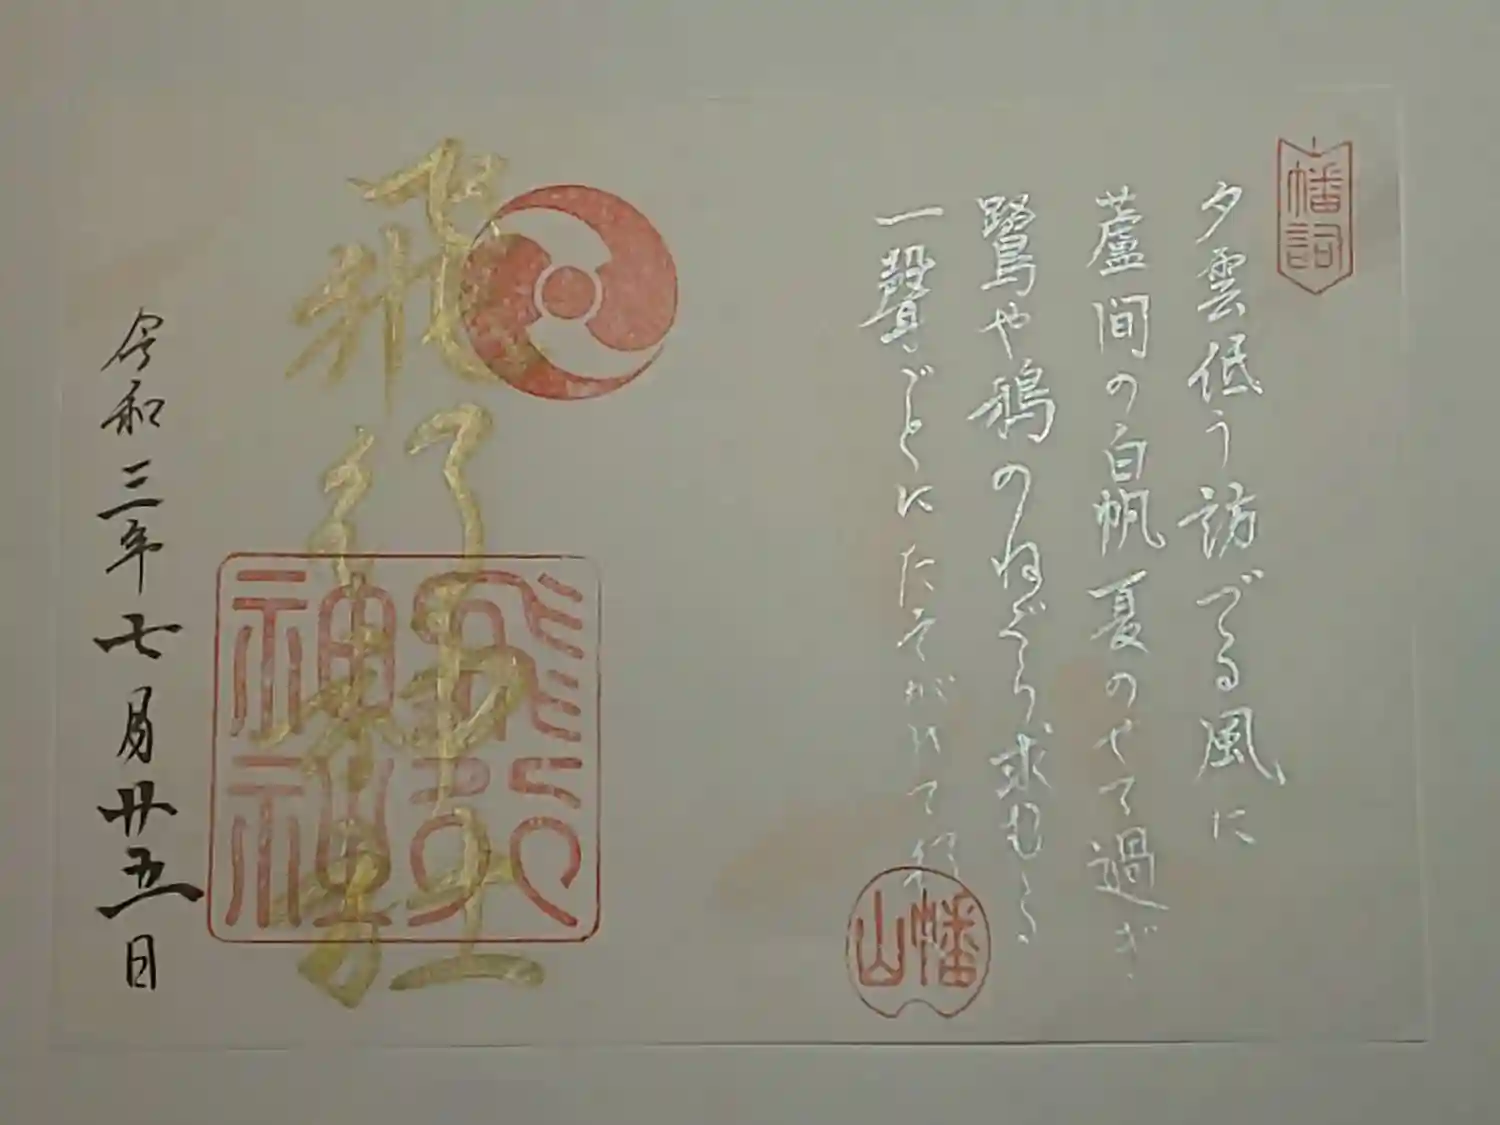 幡詞
夕雲低う訪づる風に
蘆間の白帆夏のせて過ぎ
鷺や鴉のねぐら求むる
一聲ごとにたそがれて行
幡山
飛行
令和三年七月廿五日